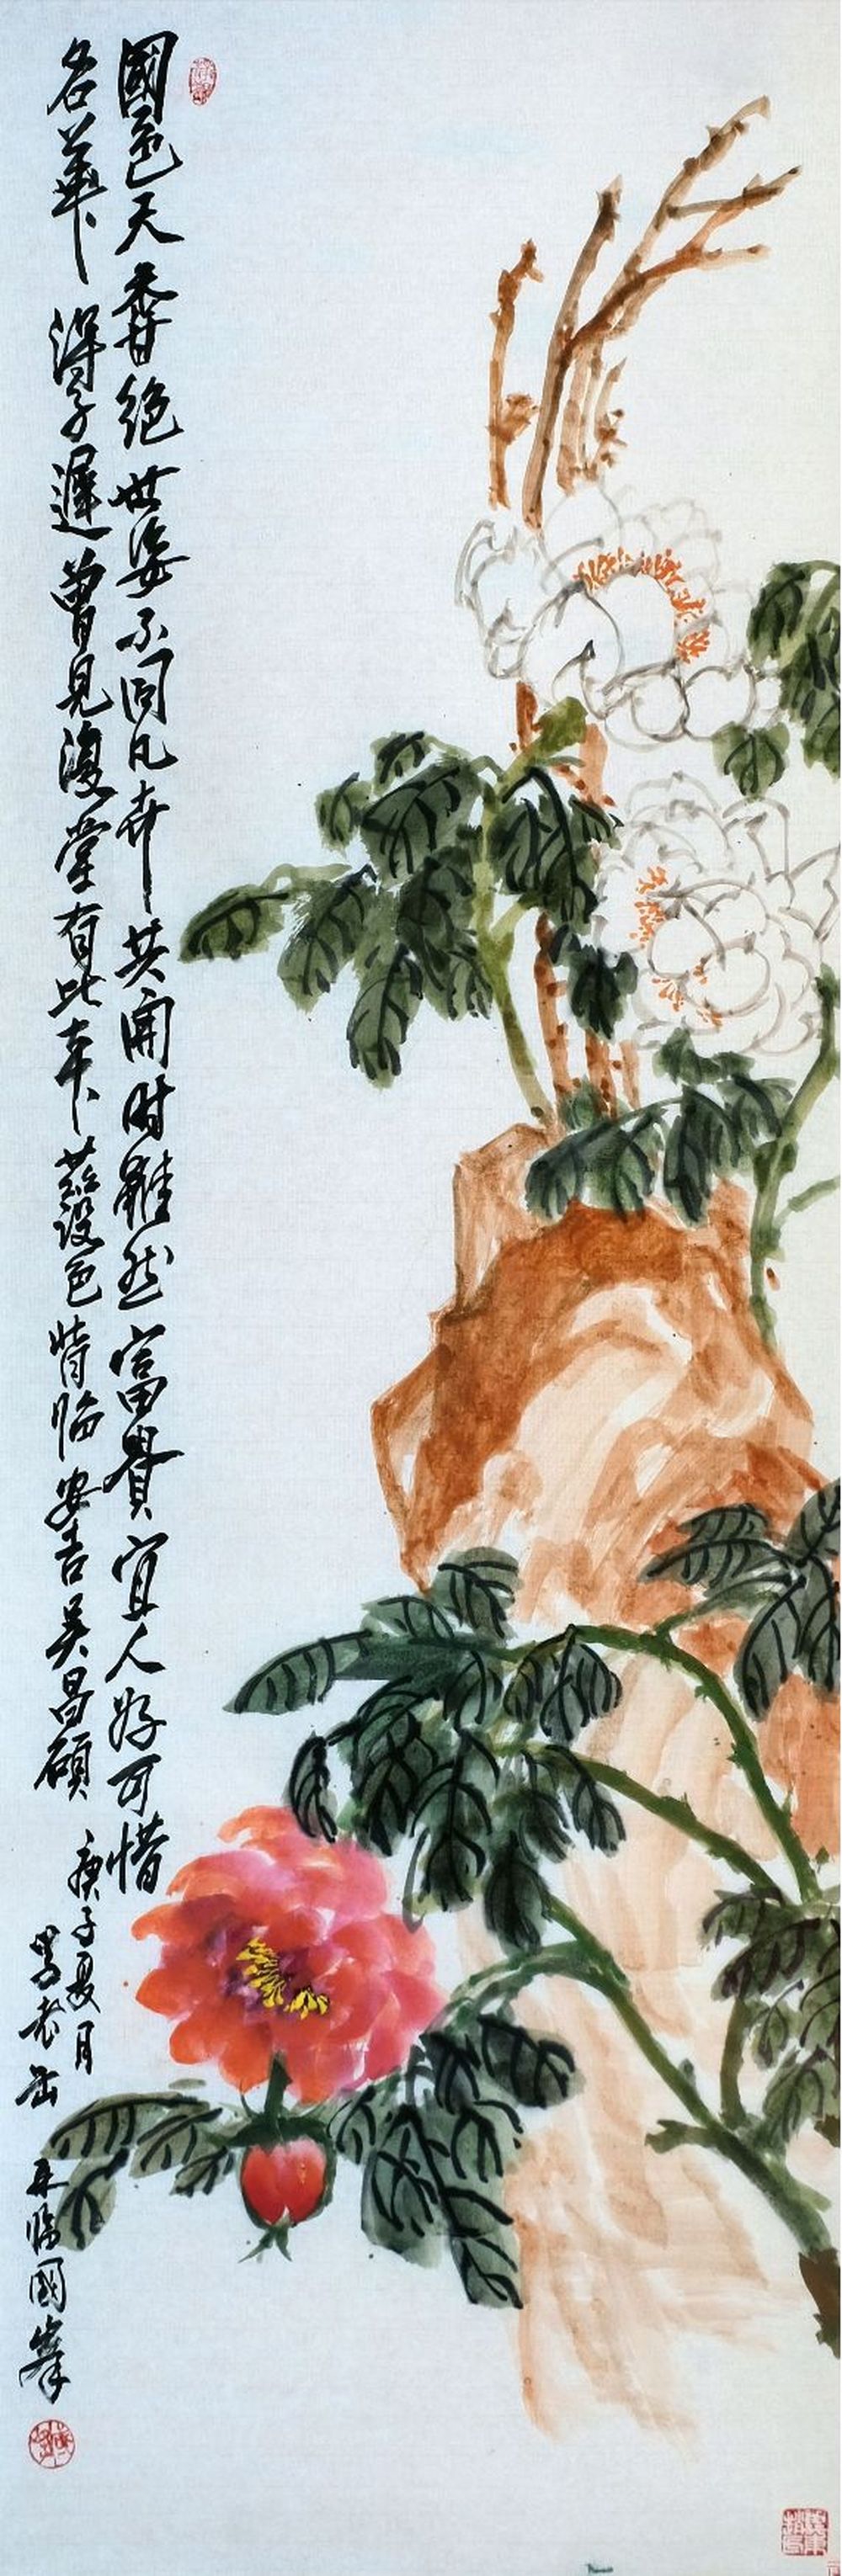 國色天香絕世姿不同凡卉共開時雖然富貴宜人好可惜
名華得子遲曾見復堂有此本茲設色背臨安吉吳昌碩
庚子夏月
苦老缶
又臨國峯